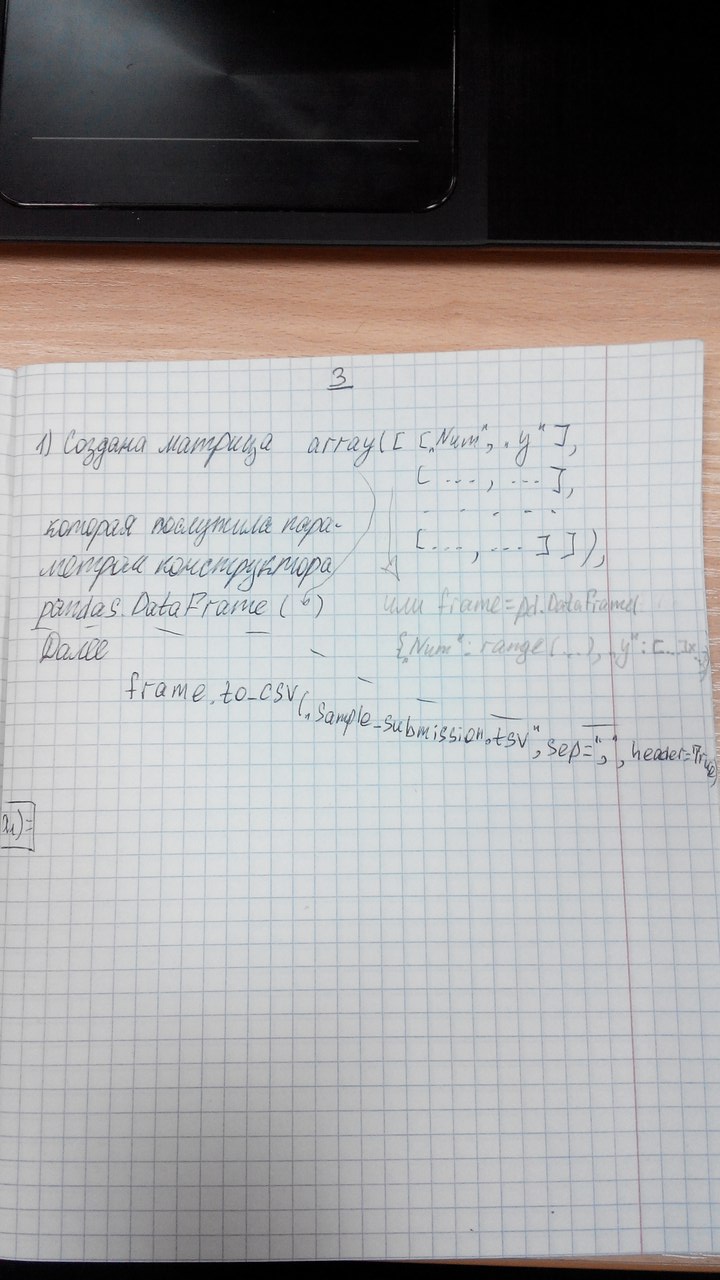 3
1) Создана матрица array([ [„Num", „y" ],
[ ..., ... ],
. . . . .
[..., ... ] ]),
которая послужила пара-
метром конструктора
pandas.DataFrame ( )
или frame=pd.DataFrame(
Далее
{„Num": range(...), „y": [...]
frame.to_csv(„sample_submission.tsv", sep=",", header=True)
x₁)=